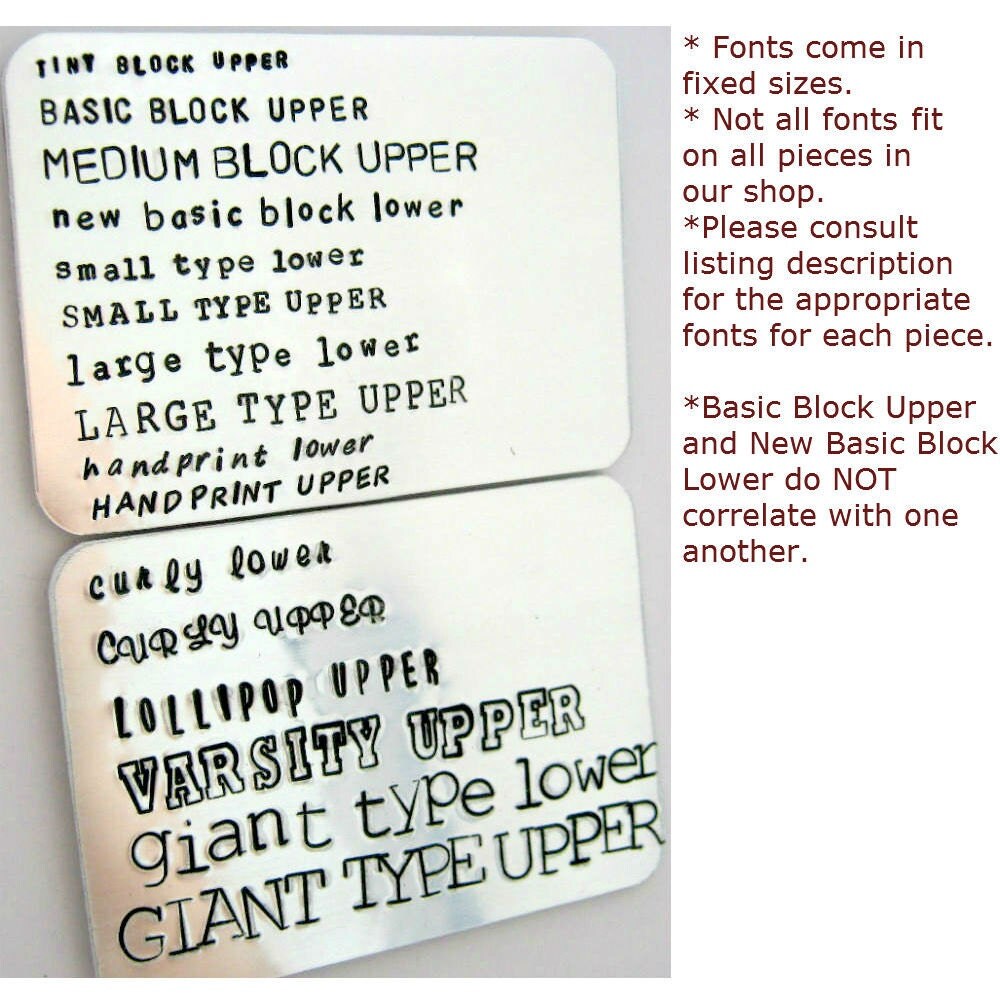 TINY BLOCK UPPER
BASIC BLOCK UPPER
MEDIUM BLOCK UPPER
new basic block lower
small type lower
SMALL TYPE UPPER
large type lower
LARGE TYPE UPPER
handprint lower
HANDPRINT UPPER
curly lower
CURLY UPPER
LOLLIPOP UPPER
VARSITY UPPER
giant type lower
GIANT TYPE UPPER
* Fonts come in
fixed sizes.
* Not all fonts fit
on all pieces in
our shop.
*Please consult
listing description
for the appropriate
fonts for each piece.
*Basic Block Upper
and New Basic Block
Lower do NOT
correlate with one
another.